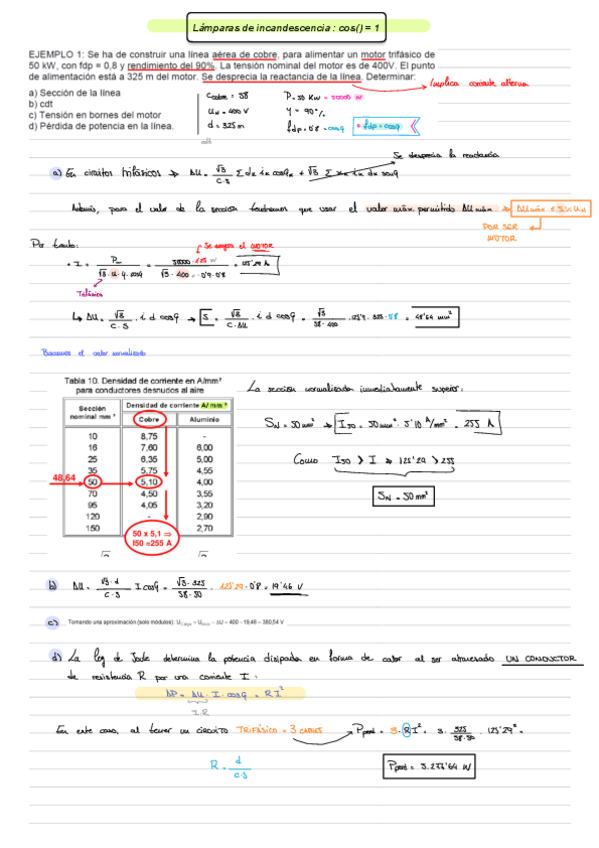 Lámparas de incandescencia : cos() = 1
EJEMPLO 1: Se ha de construir una línea aérea de cobre, para alimentar un motor trifásico de
50 kW, con fdp = 0,8 y rendimiento del 90%. La tensión nominal del motor es de 400V. El punto
de alimentación está a 325 m del motor. Se desprecia la reactancia de la línea. Determinar:
a) Sección de la línea
b) cdt
c) Tensión en bornes del motor
d) Pérdida de potencia en la línea.
Implica corriente alterna
Ccobre = 58
UN = 400 V
d = 325 m
P = 50 KW = 50000 W
η = 90%
fdp = 0'8 = cosφ
fdp = cosφ
Se desprecia la reactancia
a) En circuitos trifásicos →
Además, para el valor de la sección tendremos que usar el valor máx. permitido ΔUmáx
POR SER
MOTOR
Por tanto:
Se mayora el MOTOR
Trifásico
Buscamos el valor normalizado
Tabla 10. Densidad de corriente en A/mm²
para conductores desnudos al aire
Sección nominal mm² Densidad de corriente A/ mm²
Cobre Aluminio
10 8,75 -
16 7,60 6,00
25 6,35 5,00
35 5,75 4,55
48,64
50 5,10 4,00
70 4,50 3,55
95 4,05 3,20
120 - 2,90
150 2,70
50 x 5,1 ⇒
I50 =255 A
La sección normalizada inmediatamente superior:
SN = 50 mm² → I50 = 50 mm² · 5'10 A/mm² = 255 A
Como I50 > I ⇒ 125'29 > 255
SN = 50 mm²
b) ΔU = √3 · d / C · S · I cosφ = √3 · 325 / 58 · 50 · 125'29 · 0'8 = 19'46 V
c) Tomando una aproximación (solo módulos):
d) La ley de Joule determina la potencia disipada en forma de calor al ser atravesado UN CONDUCTOR
de resistencia R por una corriente I:
ΔP = ΔU · I · cosφ = R I²
I · R
En este caso, al tener un circuito TRIFÁSICO = 3 CABLES → Pperd = 3 · R I² = 3 · 325 / 58 · 50 · 125'29² =
R = d / C · S
Pperd = 5.277'64 W